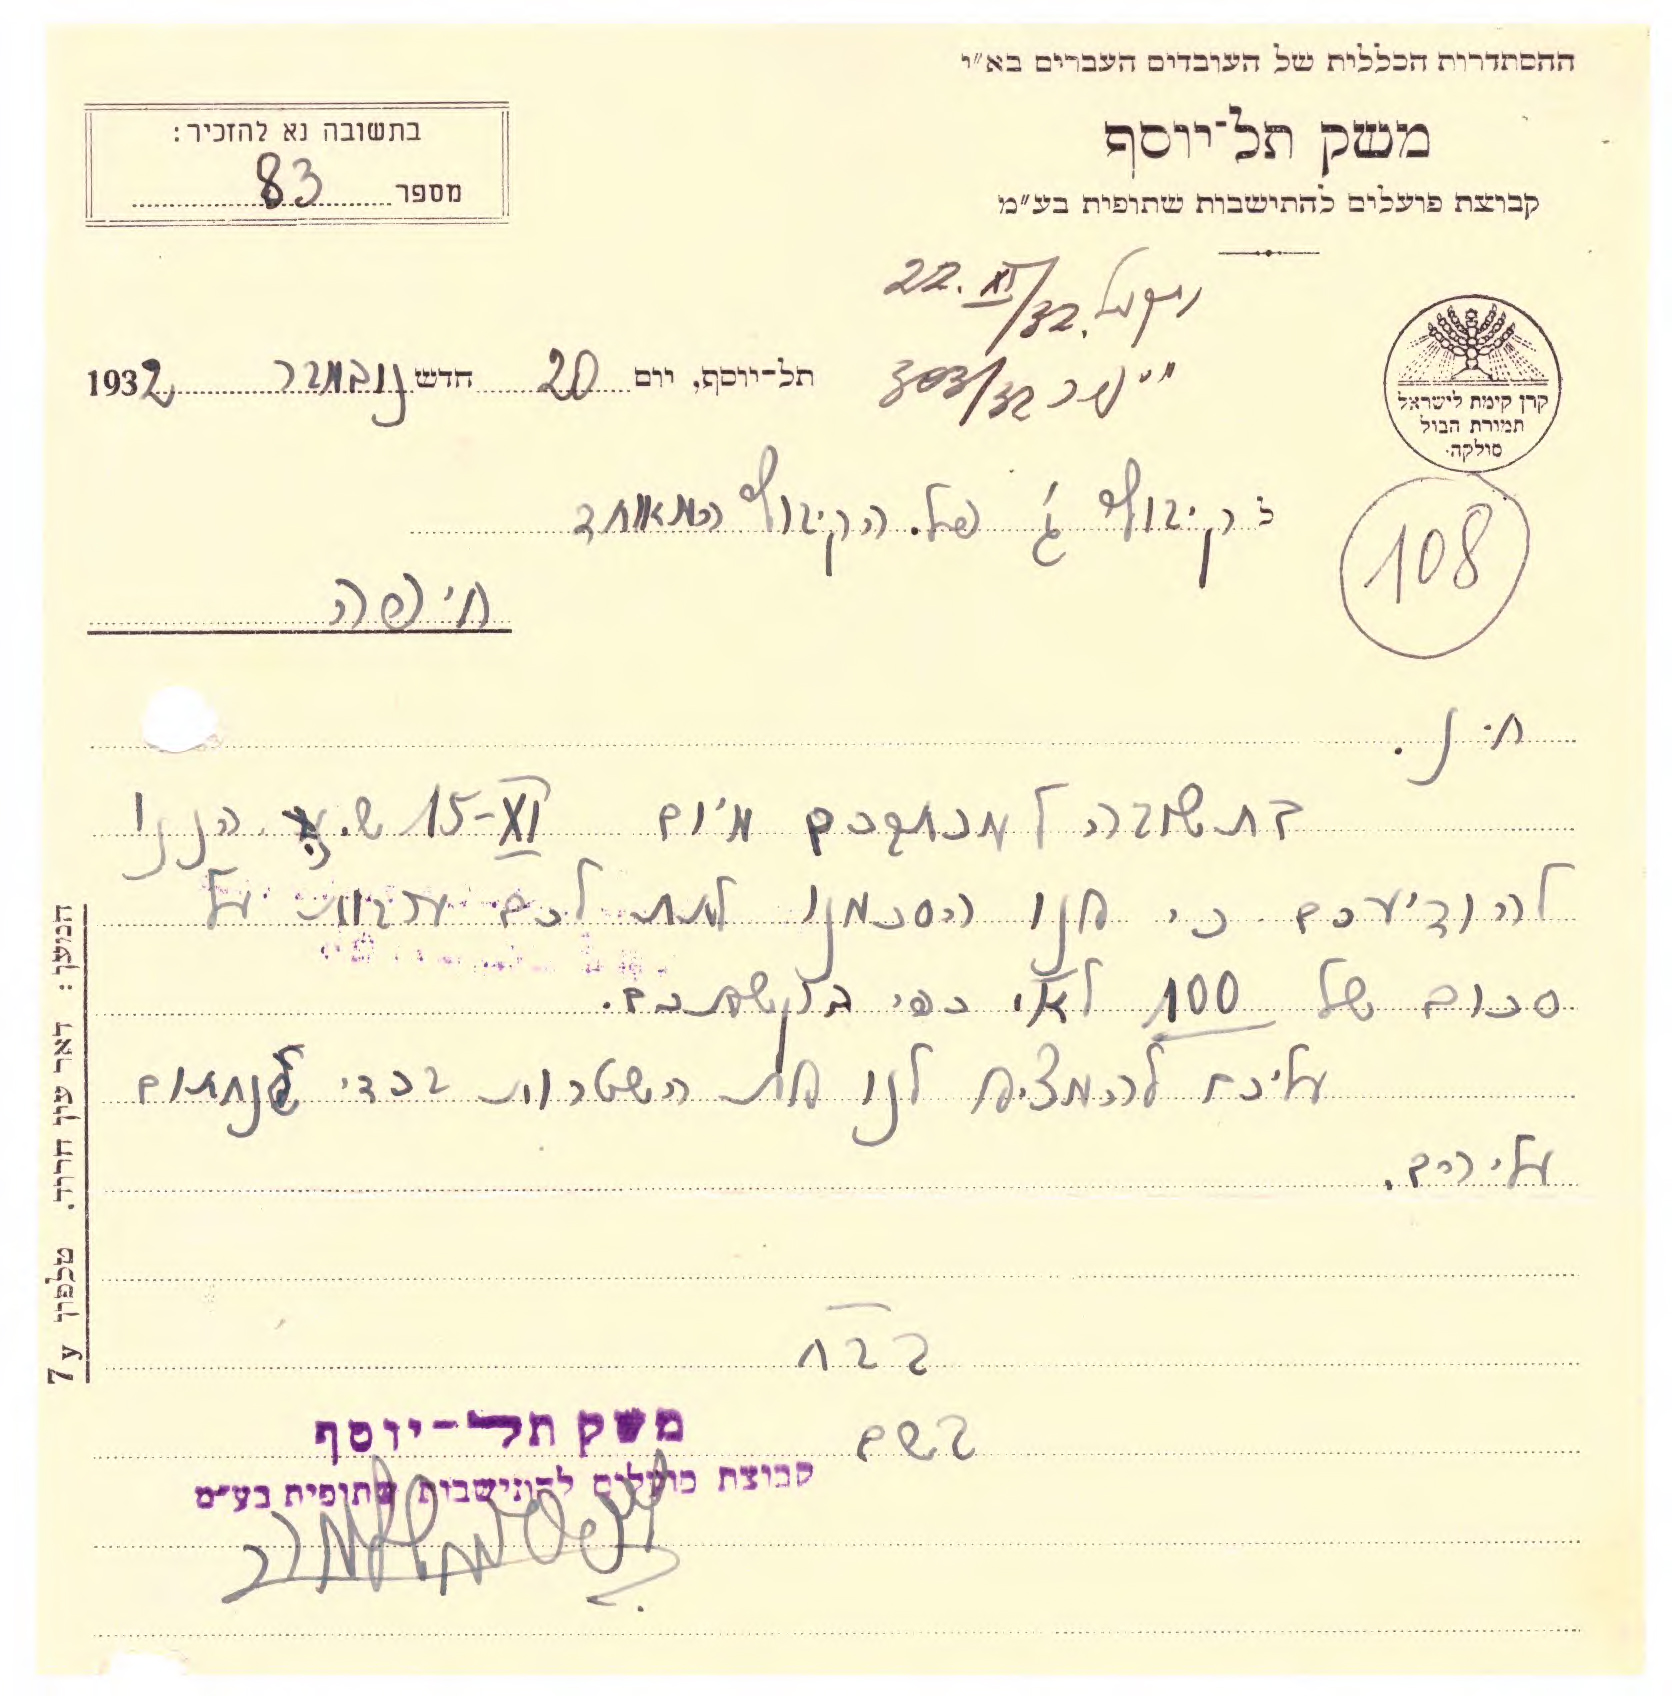 ההסתדרות הכללית של העובדים העברים בא"י
משק תל־יוסף
קבוצת פועלים להתישבות שתופית בע"מ
בתשובה נא להזכיר:
מספר 83
נתקבל 22.XI/32
303/32
תל־יוסף, יום 20 חדש נובמבר 1932
קרן קימת לישראל
תמורת הבול
סולקה.
108
לקיבוץ ג' של הקיבוץ המאוחד
חיפה
ח. נ.
בתשובה למכתבכם מיום 15-XI ש.ז. הננו
להודיעכם כי אנו הסכמנו לתת לכם ערבות על
סכום של 100 לא"י כפי בקשתכם.
עליכם להמציא לנו את השטרות בכדי שנחתום
עליהם.
בבח
בשם
משק תל־יוסף
קבוצת פועלים להתישבות שתופית בע"מ
המען: דאר עין חרוד. טלפון 7y